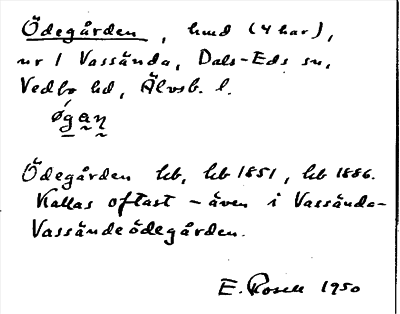 Ödegården, hmd (4 har),
nr 1 Vassända, Dals-Eds sn,
Vedbo hd, Älvsb. l.
ǿgaṇ
Ödegården hb, hb 1851, hb 1886.
Kallas oftast - även i Vassända-
Vassändeödegården.
E. Rosell 1950